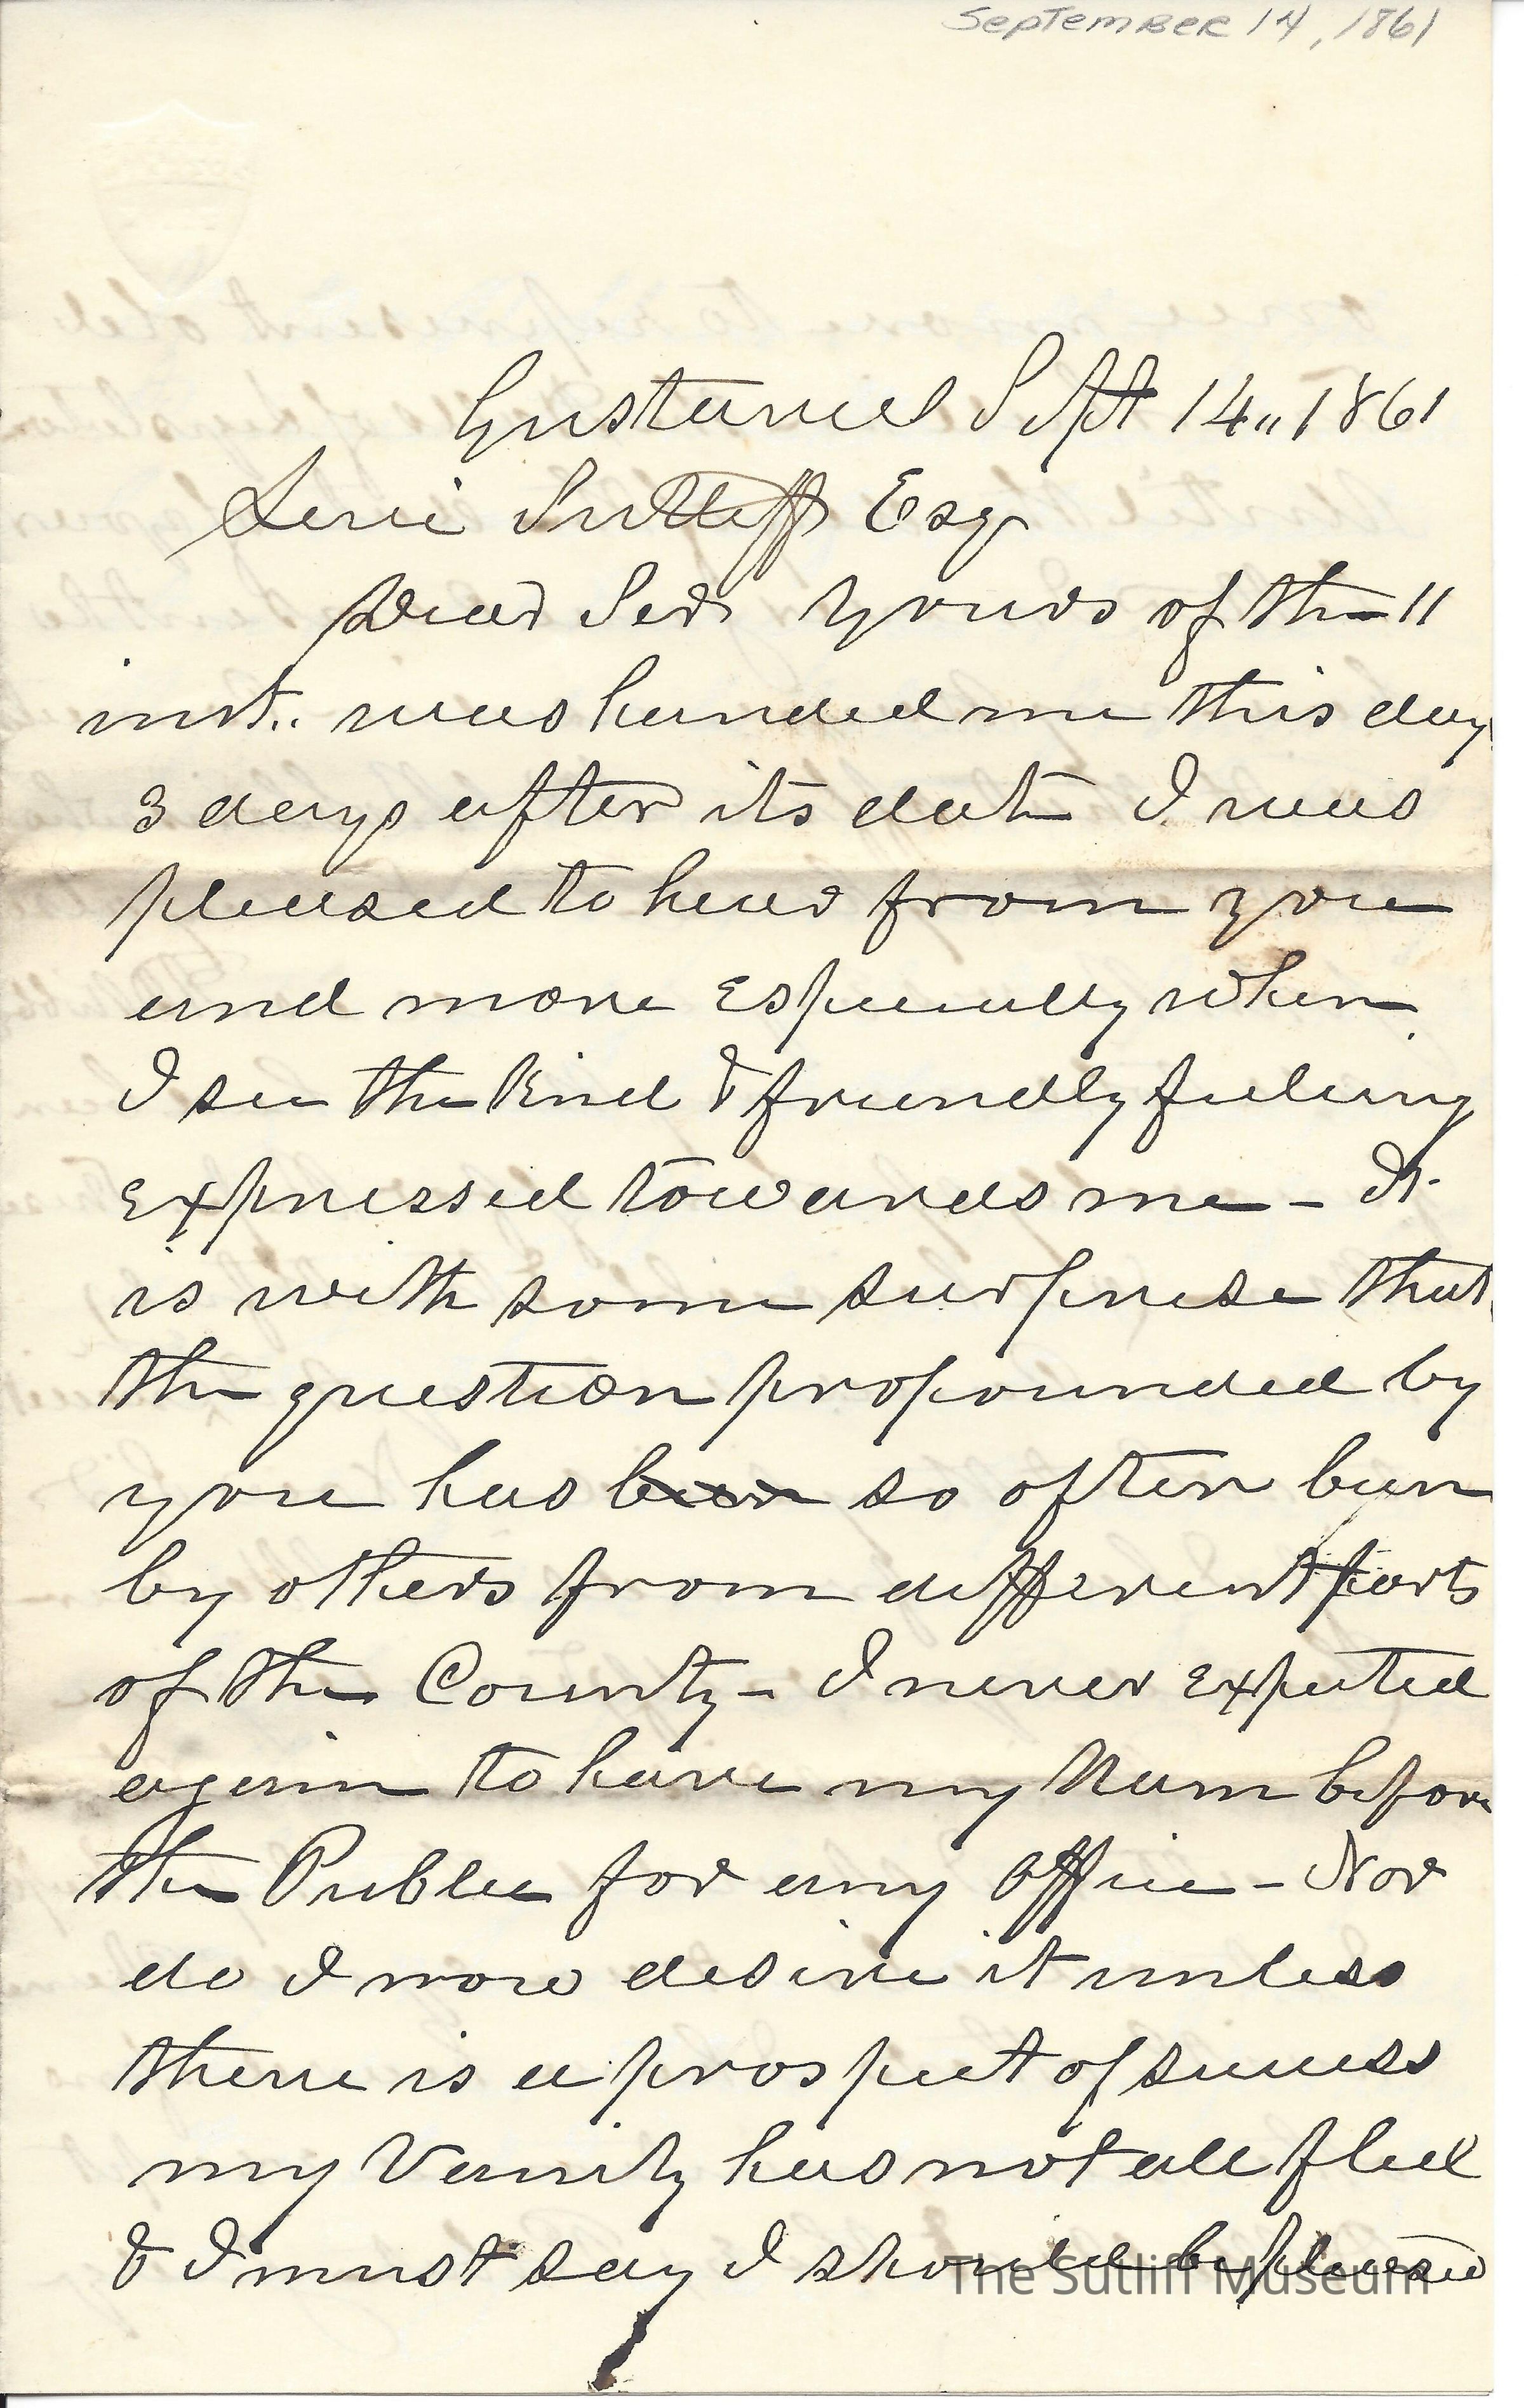 September 14, 1861
Gustavus Sept 14,, 1861
Levi Sutliff Esq
Dear Sir Yours of the 11
inst.. was handed me this day
3 days after its date I was
pleased to hear from you
and more Especially when
I see the Kind & friendly feeling
Expressed towards me - It
is with some surprise that
the question propounded by
you has been so often been
by others from different parts
of the County - I never Expected
again to have my Name before
the Public for any office - Nor
do I now desire it unless
there is a prospect of success
my Vanity has not all fled
& I must say I should be pleased
The Sutliff Museum